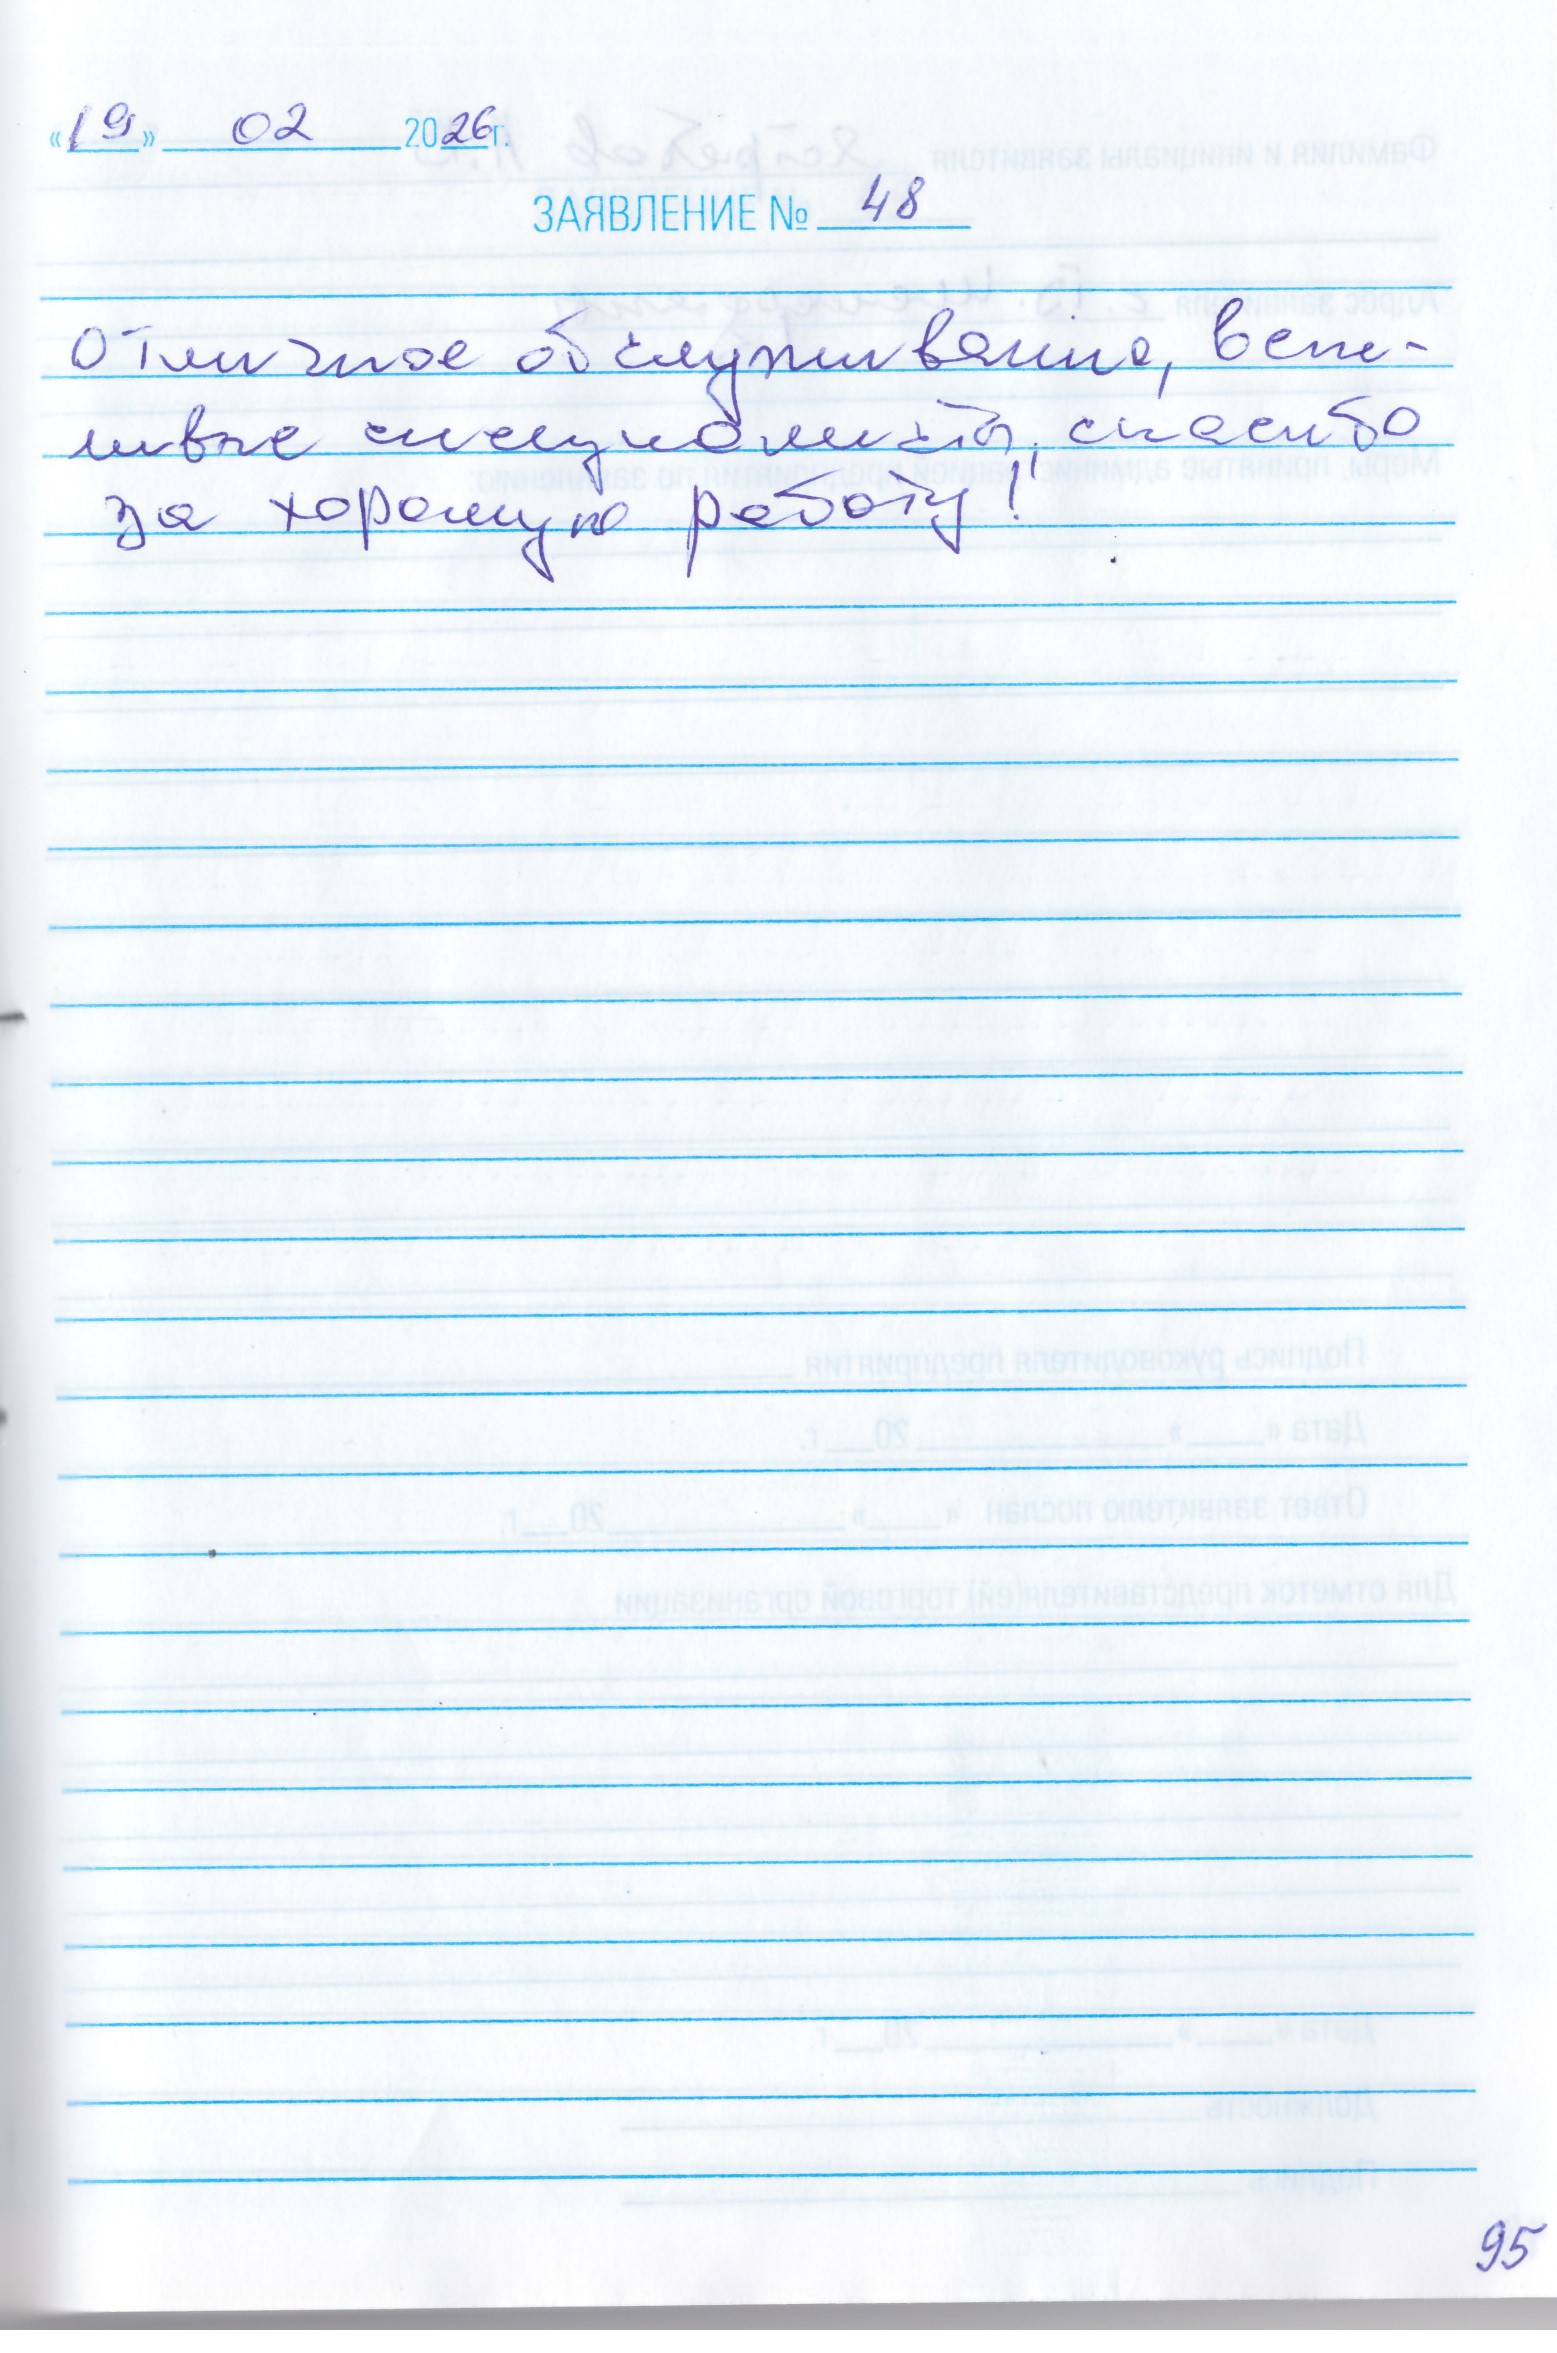 «19» 02 2026г.
ЗАЯВЛЕНИЕ № 48
Отличное обслуживание, веж-
ливые специалисты, спасибо
за хорошую работу!
95